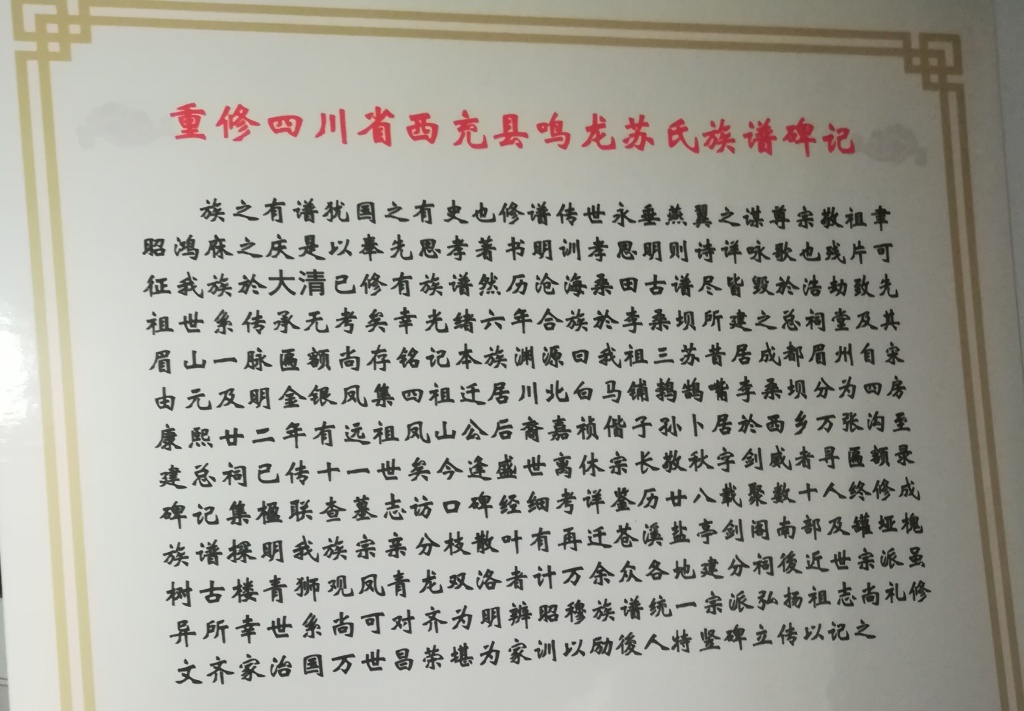 重修四川省西充县鸣龙苏氏族谱碑记
族之有谱犹国之有史也修谱传世永垂燕翼之谋尊宗敬祖聿
昭鸿庥之庆是以奉先思孝著书明训孝思明则诗详咏歌也残片可
征我族於大清已修有族谱然历沧海桑田古谱尽皆毁於浩劫致先
祖世系传承无考矣幸光绪六年合族於李桑坝所建之总祠堂及其
眉山一脉匾额尚存铭记本族渊源曰我祖三苏昔居成都眉州自宋
由元及明金银凤集四祖迁居川北白马铺鹁鸪嘴李桑坝分为四房
康熙廿二年有远祖凤山公后裔嘉祯偕子孙卜居於西乡万张沟至
建总祠已传十一世矣今逢盛世离休宗长敬秋字剑威者寻匾额录
碑记集楹联查墓志访口碑经细考详鉴历廿八载聚数十人终修成
族谱探明我族宗亲分枝散叶有再迁苍溪盐亭剑阁南部及罐垭槐
树古楼青狮观凤青龙双洛者计万余众各地建分祠後近世宗派虽
异所幸世系尚可对齐为明辨昭穆族谱统一宗派弘扬祖志尚礼修
文齐家治国万世昌荣堪为家训以励後人特竖碑立传以记之